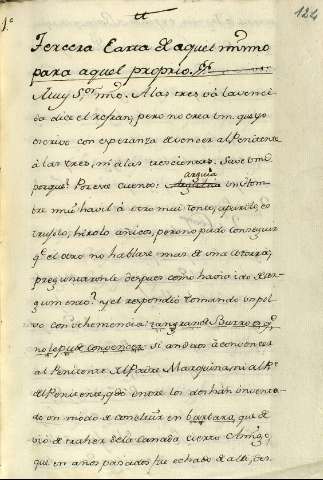 124
Tercera Carta de aquel mismo
para aquel proprio.
Muy S.or mio. A las tres vá la venci
da dice el refran, pero no crea Vm. que yo
escrivo con esperanza de vencer al Penitente
à las tres, ni à las trescientas. Save Vm.
porque? Por este cuento: arguia un Hom-
bre mui havil à otro mui tonto, apuróle, co
truxolo, hizolo añicos, pero no pudo conseguir
q.e el otro no hablase mas q.e una cotorra;
preguntaronle despues como havia ido de ar-
gumento? y el respondió tomando un pol-
vo con vehemencia: tan grande Burro es q.e
no le pude convencer. Si andaos à convencer
al Penitente y al Padre Marquina, ni al P.e
del Penitente, q.do entre los dos han inventa-
do un modo de concluir en barbara, que de
vió de traher de la Canada cierto Amigo,
que en años pasados fue echado de alli, des-